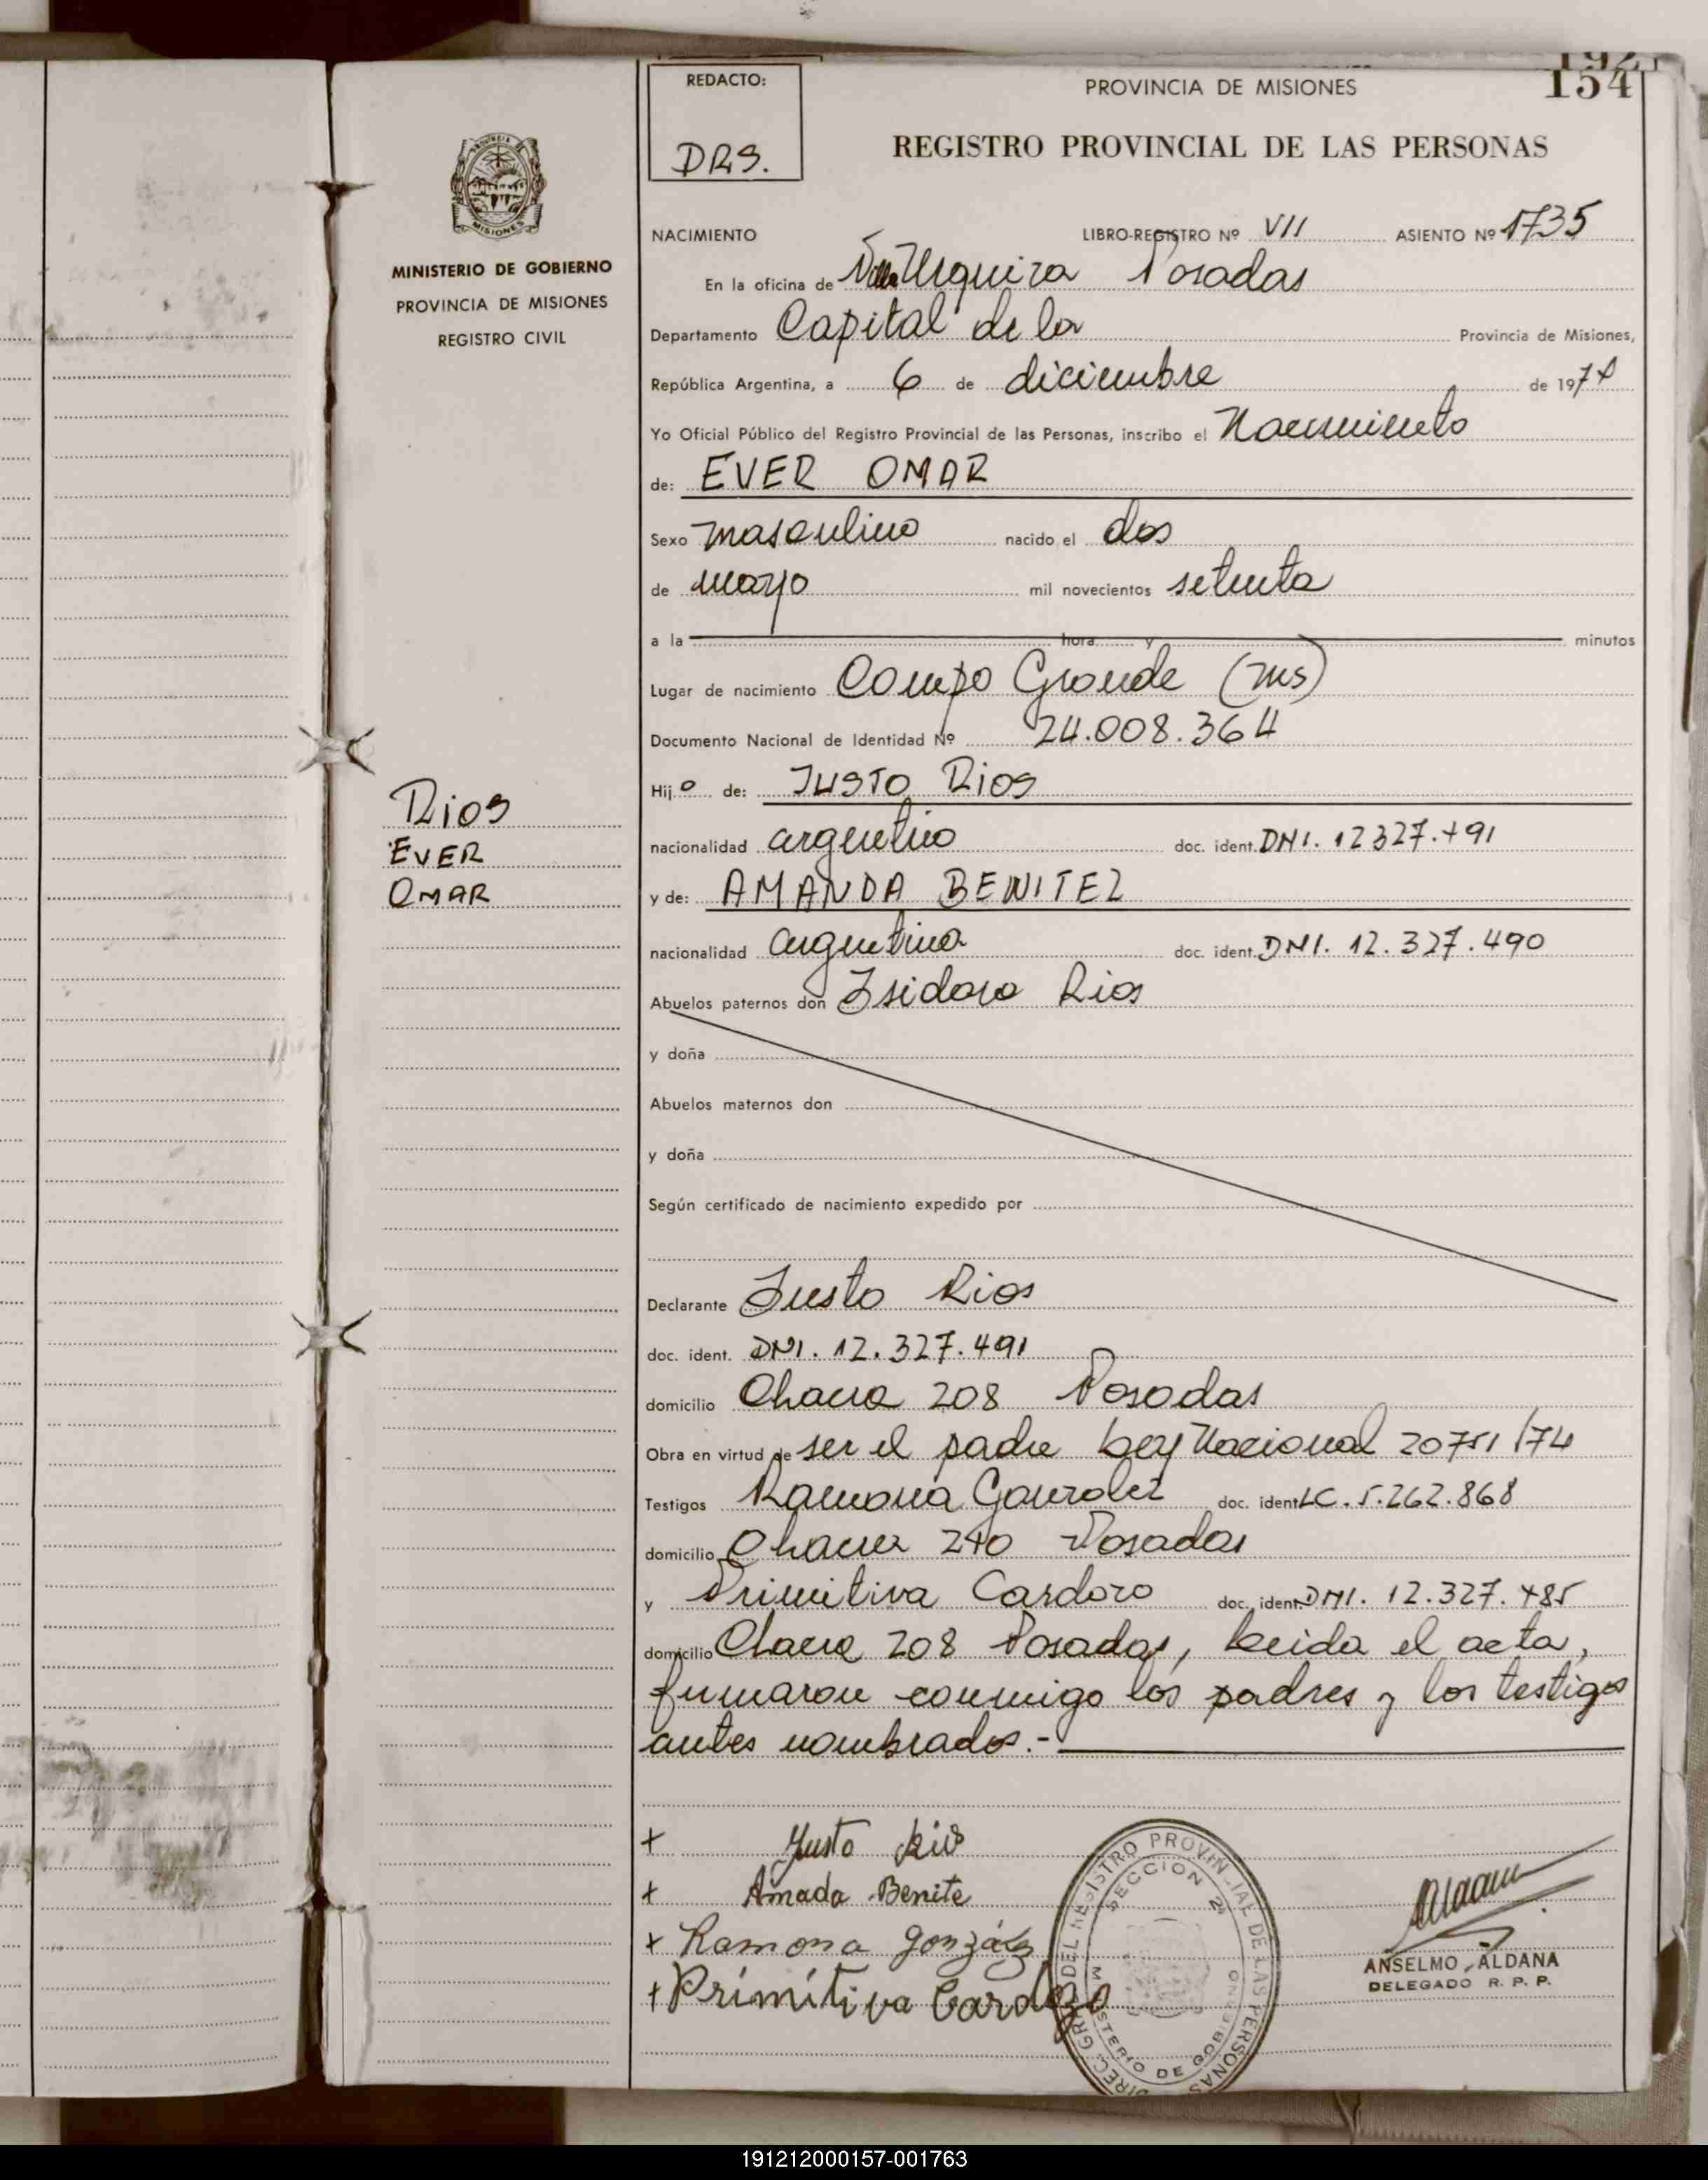 192
154
REDACTO:
DRS.
PROVINCIA DE MISIONES
REGISTRO PROVINCIAL DE LAS PERSONAS
MISIONES
MINISTERIO DE GOBIERNO
PROVINCIA DE MISIONES
REGISTRO CIVIL
NACIMIENTO LIBRO-REGISTRO Nº VII ASIENTO Nº 1735
En la oficina de Villa Urquiza Posadas
Departamento Capital de la Provincia de Misiones,
República Argentina, a 6 de diciembre de 197
Yo Oficial Público del Registro Provincial de las Personas, inscribo el Nacimiento
de: EVER OMAR
Sexo masculino nacido el dos
de mayo mil novecientos setenta
a la hora y minutos
Lugar de nacimiento Campo Grande (Ms)
Documento Nacional de Identidad Nº 24.008.364
Rios
EVER
OMAR
Hijo de: JUSTO Rios
nacionalidad argentino doc. ident. DNI. 12327.491
y de: AMANDA BENITEZ
nacionalidad argentina doc. ident. DNI. 12.327.490
Abuelos paternos don Isidoro Rios
y doña
Abuelos maternos don
y doña
Según certificado de nacimiento expedido por
Declarante Justo Rios
doc. ident. DNI. 12.327.491
domicilio Chacra 208 Posadas
Obra en virtud de ser el padre Ley Nacional 20751/74
Testigos Ramona Gonzalez doc. ident LC. 5.262.868
domicilio Chacra 240 Posadas
y Primitiva Cardozo doc. ident DNI. 12.327.485
domicilio Chacra 208 Posadas, Leida el acta,
firmaron conmigo los padres y los testigos
antes nombrados.-
+ Justo Rios
+ Amada Benite
+ Ramona González
+ Primitiva Cardozo
DIREC. GRAL. DEL REGISTRO PROVINCIAL DE LAS PERSONAS
SECCION 2ª
MINISTERIO DE GOBIERNO
ANSELMO ALDANA
DELEGADO R. P. P.
191212000157-001763